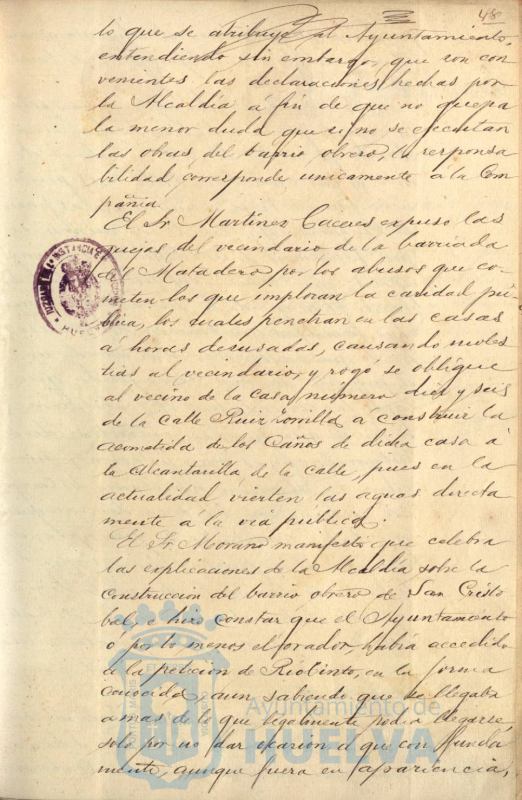 48
lo que se atribuye al Ayuntamiento,
entendiendo sin embargo, que son con
venientes las declaraciones hechas por
la Alcaldia á fin de que no quepa
la menor duda que si no se ejecutan
las obras del barrio obrero, la responsa
bilidad corresponde unicamente a la Com
pañia.
El Sr Martinez Caceres expuso las
quejas del vecindario de la barriada
del Matadero por los abusos que co-
meten los que imploran la caridad pú-
blica, los cuales penetran en las casas
á horas desusadas, causando moles
tias al vecindario, y rogó se obligue
al vecino de la casa número diez y seis
de la calle Ruiz Zorrilla á construir la
acometida de los Caños de dicha casa á
la Alcantarilla de la calle, pues en la
actualidad vierten las aguas directa
mente á la via pública.
El Sr. Morano manifestó que celebra
las explicaciones de la Alcaldia sobre la
construccion del barrio obrero de San Cristo
bal, é hizo constar que el Ayuntamiento
ó por lo menos el orador, habia accedido
á la peticion de Riotinto, en la forma
conocida, aun sabiendo que se llegaba
a mas de lo que legalmente podia llegarse,
solo por no dar ocasion á que con funda
mente, aunque fuera en apariencia,
Ayuntamiento de
HUELVA